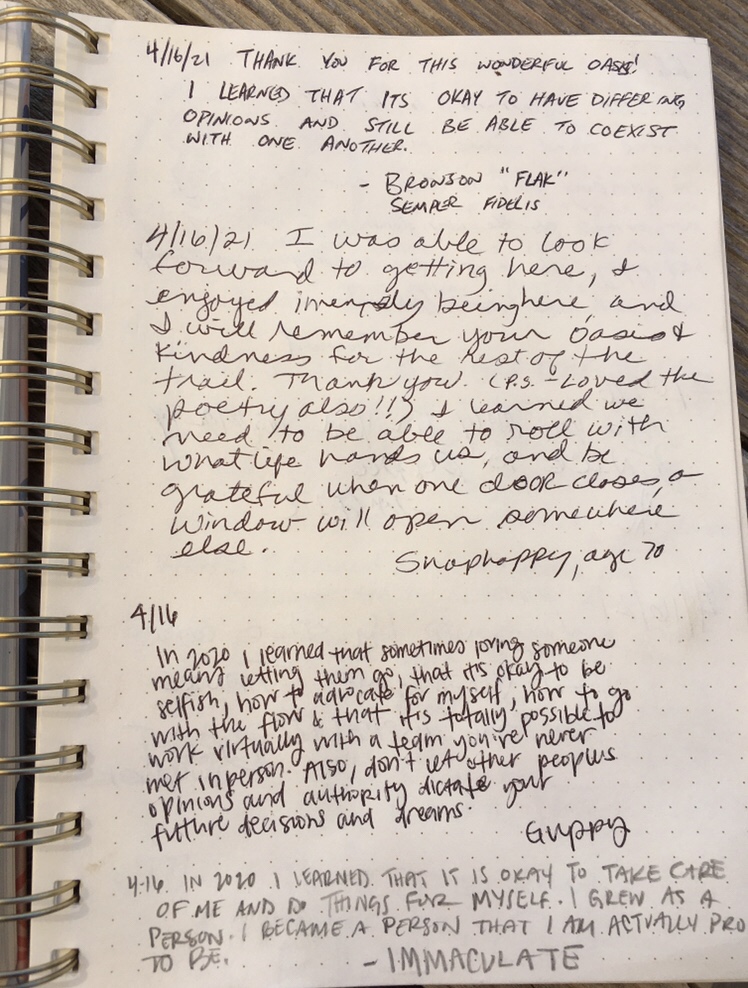 4/16/21 THANK YOU FOR THIS WONDERFUL OASIS!
I LEARNED THAT ITS OKAY TO HAVE DIFFERING
OPINIONS AND STILL BE ABLE TO COEXIST
WITH ONE ANOTHER.
- BRONSON "FLAK"
SEMPER FIDELIS
4/16/21 I was able to look
forward to getting here, I
enjoyed imensly being here, and
I will remember your Oasis &
kindness for the rest of the
trail. Thank you! (P.S. - Loved the
poetry also!!!) I learned we
need to be able to roll with
what life hands us, and be
grateful when one door closes, a
window will open somewhere
else.
Snaphappy, age 70
4/16
In 2020 I learned that sometimes loving someone
means letting them go, that it's okay to be
selfish, how to advocate for myself, how to go
with the flow & that it's totally possible to
work virtually with a team you're never
met in person. Also, don't let other peoples
opinions and authority dictate your
future decisions and dreams.
Guppy
4.16. IN 2020 I LEARNED THAT IT IS OKAY TO TAKE CARE
OF ME AND DO THINGS FOR MYSELF. I GREW AS A
PERSON. I BECAME A PERSON THAT I AM ACTUALLY PRO
TO BE.
- IMMACULATE